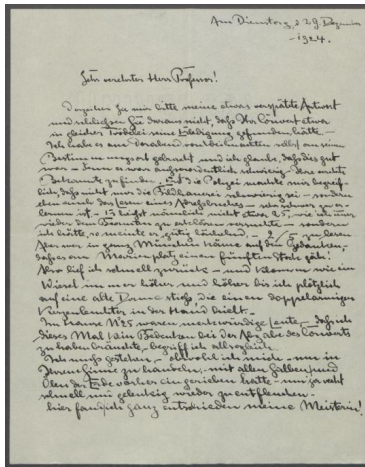 Am Dienstag, d. 29. Dezember
– 1924.
Sehr verehrter Herr Professor!
Verzeihen Sie mir bitte meine etwas verspätete Antwort
und schliessen Sie daraus nicht, dass Ihr Convert etwa
in gleicher seine Erledigung gefunden hätte –
Ich habe es am Vorabend von Weihnachten selbst an seinen
Bestimmungsort gebracht und ich glaube, dass dies gut
war – denn es war ausserordentlich schwierig Ihre werte
Bekannte zu finden, und die Polizei machte mir begreif-
lich, dass nicht nur die Bildhauerei schwierig sei – sondern
eben auch das Lesen eines Adressbuches – sehr schwer zu er-
lernen ist. – heisst nämlich nicht etwa 25, wie ich nur
wieder dem Beamten zu erklären versuchte – sondern
ich hätte, so meinte er gütig lächelnd – 2/5 zu lesen
Aber wer in ganz München käme auf den Gedanken,
dass es am platz einen fünften Stock gäbe!
Also lief ich schnell zurück – und klomm wie ein
Wiesel immer höher und höher bis ich plötzlich
auf eine alte Dame stiess, die einen doppelarmigen
Kerzenleuchter in der Hand hielt.
Im Hause N° 25 waren merkwürdige Leute – dass ich
dieses Mal kein Bedenken bei der Abgabe des Converts
zu haben brauchte, begriff ich allsogleich.
Ich muss gestehen, – obwohl ich mich – um in
Ihrem Sinne zu handeln, – mit allen Salben und
Ölen der Erde vorher eingerieben hatte – um ja recht
schnell und gelenkig wieder zu entfliehen –
hier fand ich ganz entschieden meine Meisterin!